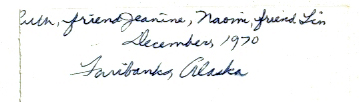 Ruth, friend Jeanine, Naomi, friend Lin
December, 1970
Fairbanks, Alaska